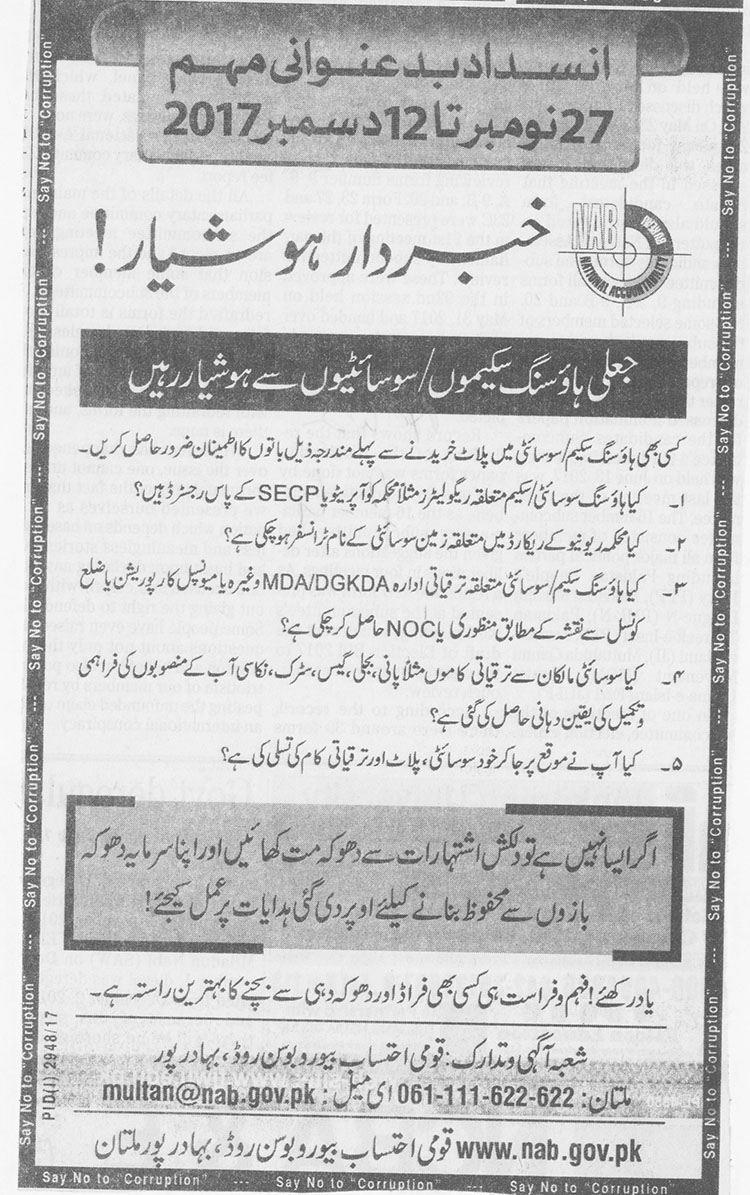 انسداد بدعنوانی مہم
27 نومبر تا 12 دسمبر 2017
NAB
NATIONAL ACCOUNTABILITY BUREAU
خبردار ہوشیار!
جعلی ہاؤسنگ سکیموں/سوسائٹیوں سے ہوشیار رہیں
کسی بھی ہاؤسنگ سکیم/سوسائٹی میں پلاٹ خریدنے سے پہلے مندرجہ ذیل باتوں کا اطمینان ضرور حاصل کریں۔
۱۔ کیا ہاؤسنگ سوسائٹی/سکیم متعلقہ ریگولیٹرز مثلاً محکمہ کوآپریٹو یا SECP کے پاس رجسٹرڈ ہیں؟
۲۔ کیا محکمہ ریونیو کے ریکارڈ میں متعلقہ زمین سوسائٹی کے نام ٹرانسفر ہوچکی ہے؟
۳۔ کیا ہاؤسنگ سکیم/سوسائٹی متعلقہ ترقیاتی ادارہ MDA/DGKDA وغیرہ یا میونسپل کارپوریشن یا ضلع
کونسل سے نقشہ کے مطابق منظوری یا NOC حاصل کرچکی ہے؟
۴۔ کیا سوسائٹی مالکان سے ترقیاتی کاموں مثلاً پانی، بجلی، گیس، سڑک، نکاسی آب کے منصوبوں کی فراہمی
وتکمیل کی یقین دہانی حاصل کی گئی ہے؟
۵۔ کیا آپ نے موقع پر جا کر خود سوسائٹی، پلاٹ اور ترقیاتی کام کی تسلی کی ہے؟
اگر ایسا نہیں ہے تو دلکش اشتہارات سے دھوکہ مت کھائیں اور اپنا سرمایہ دھوکہ
بازوں سے محفوظ بنانے کیلئے اوپر دی گئی ہدایات پر عمل کیجئے!
یاد رکھئے! فہم وفراست ہی کسی بھی فراڈ اور دھوکہ دہی سے بچنے کا بہترین راستہ ہے۔
شعبہ آگہی وتدارک: قومی احتساب بیورو بوسن روڈ، بہادر پور
ملتان: 061-111-622-622 ای میل: multan@nab.gov.pk
www.nab.gov.pk قومی احتساب بیورو بوسن روڈ، بہادر پور ملتان
PID(I) 2948/17
Say No to "Corruption" --- Say No to "Corruption" --- Say No to "Corruption" --- Say No to "Corruption" --- Say No to "Corruption"
Say No to "Corruption" --- Say No to "Corruption" --- Say No to "Corruption" --- Say No to "Corruption" --- Say No to "Corruption"
Say No to "Corruption" --- Say No to "Corruption" --- Say No to "Corruption"